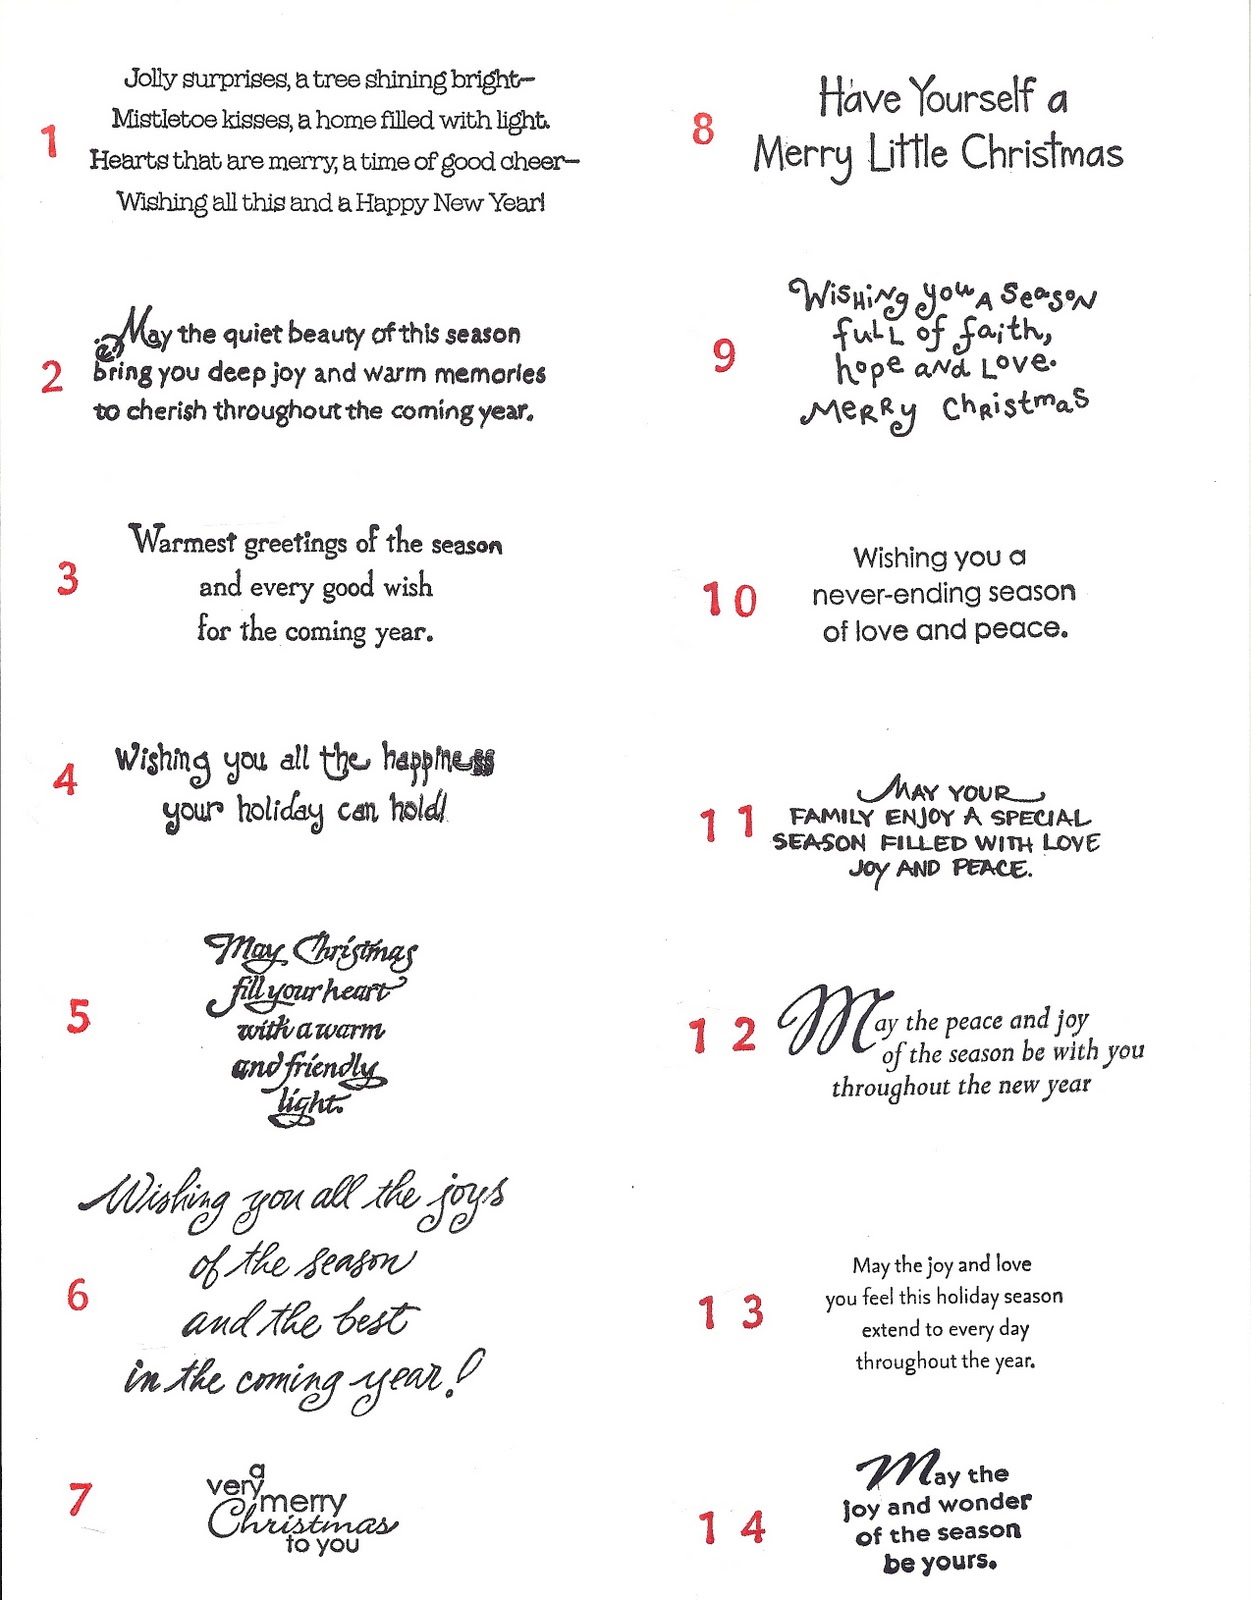 1
Jolly surprises, a tree shining bright—
Mistletoe kisses, a home filled with light.
Hearts that are merry, a time of good cheer—
Wishing all this and a Happy New Year!
2
May the quiet beauty of this season
bring you deep joy and warm memories
to cherish throughout the coming year.
3
Warmest greetings of the season
and every good wish
for the coming year.
4
Wishing you all the happiness
your holiday can hold!
5
May Christmas
fill your heart
with a warm
and friendly
light.
6
Wishing you all the joys
of the season
and the best
in the coming year!
7
a
very
merry
Christmas
to you
8
Have Yourself a
Merry Little Christmas
9
Wishing you A Season
full of faith,
hope and Love.
Merry Christmas
10
Wishing you a
never-ending season
of love and peace.
11
MAY YOUR
FAMILY ENJOY A SPECIAL
SEASON FILLED WITH LOVE
JOY AND PEACE.
12
May the peace and joy
of the season be with you
throughout the new year
13
May the joy and love
you feel this holiday season
extend to every day
throughout the year.
14
May the
joy and wonder
of the season
be yours.